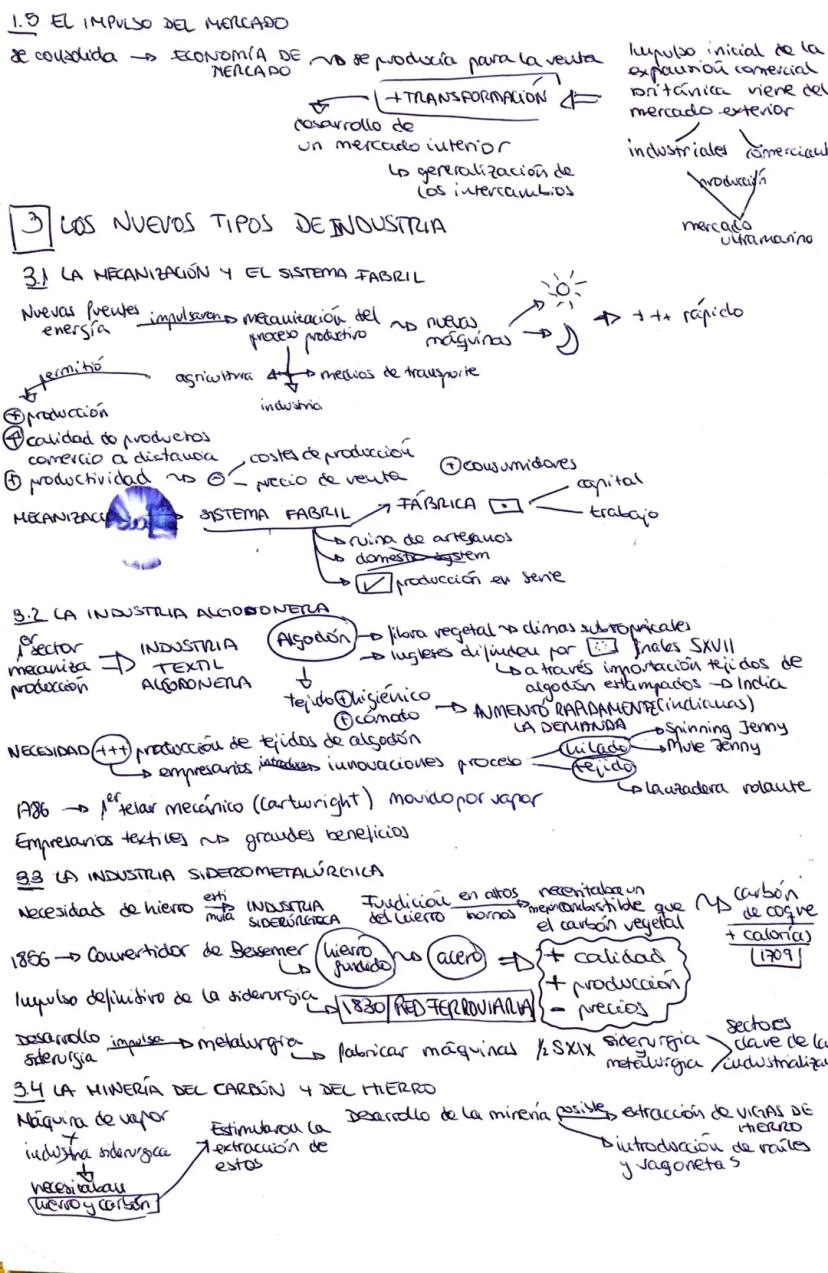 1.5 EL IMPULSO DEL MERCADO
se consolida → ECONOMÍA DE MERCADO → se producía para la venta
+ TRANSFORMACIÓN
desarrollo de
un mercado interior
↳ generalización de
los intercambios
Impulso inicial de la
expansión comercial
británica viene del
mercado exterior
industriales
producción
mercado
ultramarino
3 LOS NUEVOS TIPOS DE INDUSTRIA
3.1 LA MECANIZACIÓN Y EL SISTEMA FABRIL
Nuevas fuentes energía impulsaron → mecanización del proceso productivo → nuevas máquinas → +++ rápido
permitió
agricultura ← → medios de transporte
industria
+ producción
+ calidad de productos
comercio a distancia
+ productividad → - costes de producción
- precio de venta
+ consumidores
SISTEMA FABRIL → FÁBRICA
capital
trabajo
→ ruina de artesanos
→ domestic system
→ ✓ producción en serie
3.2 LA INDUSTRIA ALGODONERA
1er sector
mecaniza
producción
⇒ INDUSTRIA
TEXTIL
ALGODONERA
Algodón → fibra vegetal → climas subtropicales
→ ingleses difunden por finales SXVII
↳ a través importación tejidos de
algodón estampados → India
(indianas)
tejido + higiénico
+ cómodo
→ AUMENTÓ RAPIDAMENTE
LA DEMANDA
NECESIDAD +++ producción de tejidos de algodón
↳ empresarios introducen innovaciones proceso
hilado → Spinning Jenny
→ Mule Jenny
tejido
↳ lanzadera volante
1786 → 1er telar mecánico (Cartwright) movido por vapor
Empresarios textiles → grandes beneficios
3.3 LA INDUSTRIA SIDEROMETALÚRGICA
Necesidad de hierro estimula INDUSTRIA SIDERÚRGICA
Fundición del hierro en altos hornos → necesitaba un
mejor combustible que
el carbón vegetal
→ carbón
de coque
+ calorías
1709
1856 → Convertidor de Bessemer
↳ hierro fundido → acero ⇒ + calidad
+ producción
- precios
Impulso definitivo de la siderurgia ↳ 1830 RED FERROVIARIA
Desarrollo siderurgia impulsa → metalurgia ↳ fabricar máquinas
1/2 SXIX siderurgia
metalurgia
sectores
clave de la
3.4 LA MINERÍA DEL CARBÓN Y DEL HIERRO
Máquina de vapor
+
industria siderurgica
↓
necesitaban
hierro y carbón
Estimularon la
extracción de
estos
Desarrollo de la minería posible → extracción de VIGAS DE HIERRO
→ introducción de raíles
y vagonetas